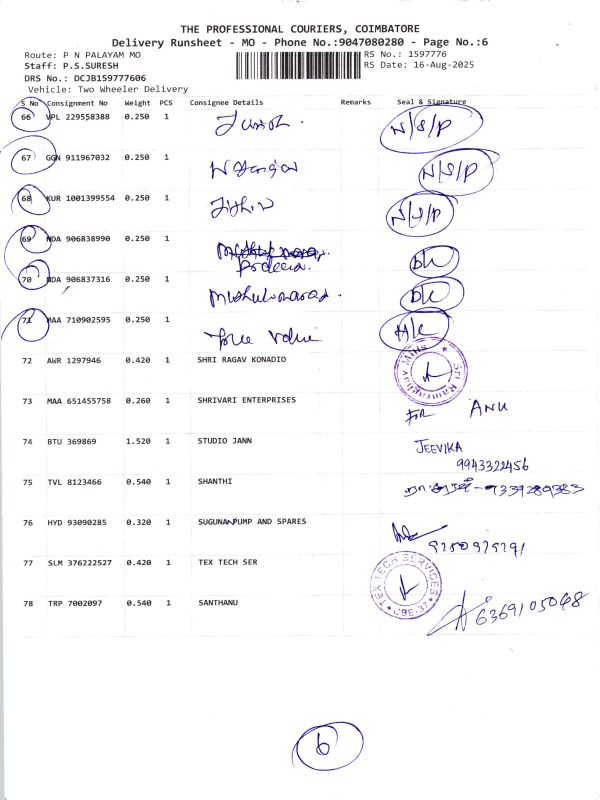 THE PROFESSIONAL COURIERS, COIMBATORE
Delivery Runsheet - MO - Phone No.:9047080280 - Page No.:6
Route: P N PALAYAM MO
RS No.: 1597776
Staff: P.S.SURESH
RS Date: 16-Aug-2025
DRS No.: DCJB159777606
Vehicle: Two Wheeler Delivery
S No Consignment No Weight PCS Consignee Details Remarks Seal & Signature
66 VPL 229558388 0.250 1 N/S/P
67 GGN 911967032 0.250 1 N/S/P
68 KUR 1001399554 0.250 1 N/S/P
69 NDA 906838990 0.250 1 D/L
70 NDA 906837316 0.250 1 D/L
71 MAA 710902595 0.250 1
72 AWR 1297946 0.420 1 SHRI RAGAV KONADIO
73 MAA 651455758 0.260 1 SHRIVARI ENTERPRISES FOR ANU
74 BTU 369869 1.520 1 STUDIO JANN JEEVIKA
9943322456
75 TVL 8123466 0.540 1 SHANTHI 9339289383
76 HYD 93090285 0.320 1 SUGUNA PUMP AND SPARES
77 SLM 376222527 0.420 1 TEX TECH SER TEX TECH SERVICES CBE-37
78 TRP 7002097 0.540 1 SANTHANU 6369105048
6